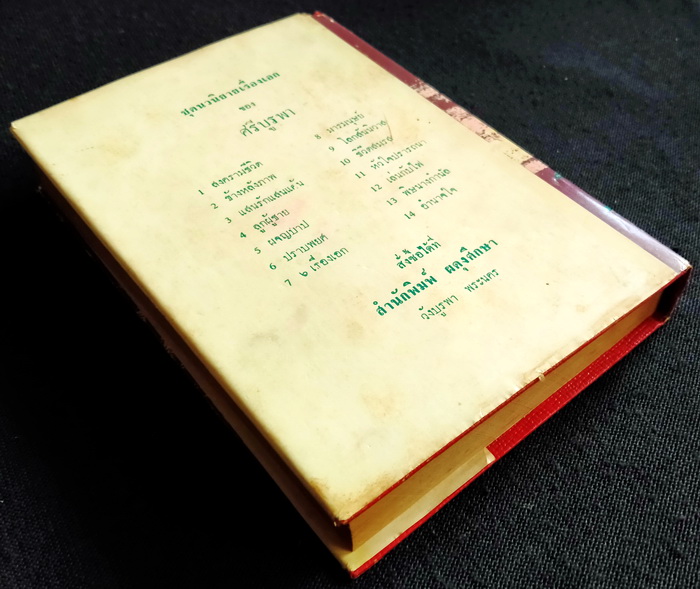 ชุดนวนิยายเรื่องเอก
ของ
ศรีบูรพา
1 สงครามชีวิต
2 ข้างหลังภาพ
3 แสนรักแสนแค้น
4 ลูกผู้ชาย
5 ผจญบาป
6 ปราบพยศ
7 ๖ เรื่องเอก
8 มารมนุษย์
9 โลกสันนิวาส
10 ชีวิตสมรส
11 หัวใจปรารถนา
12 เล่นกับไฟ
13 พิษนางกำนัล
14 อำนาจใจ
สั่งซื้อได้ที่
สำนักพิมพ์ ผดุงศึกษา
วังบูรพา พระนคร